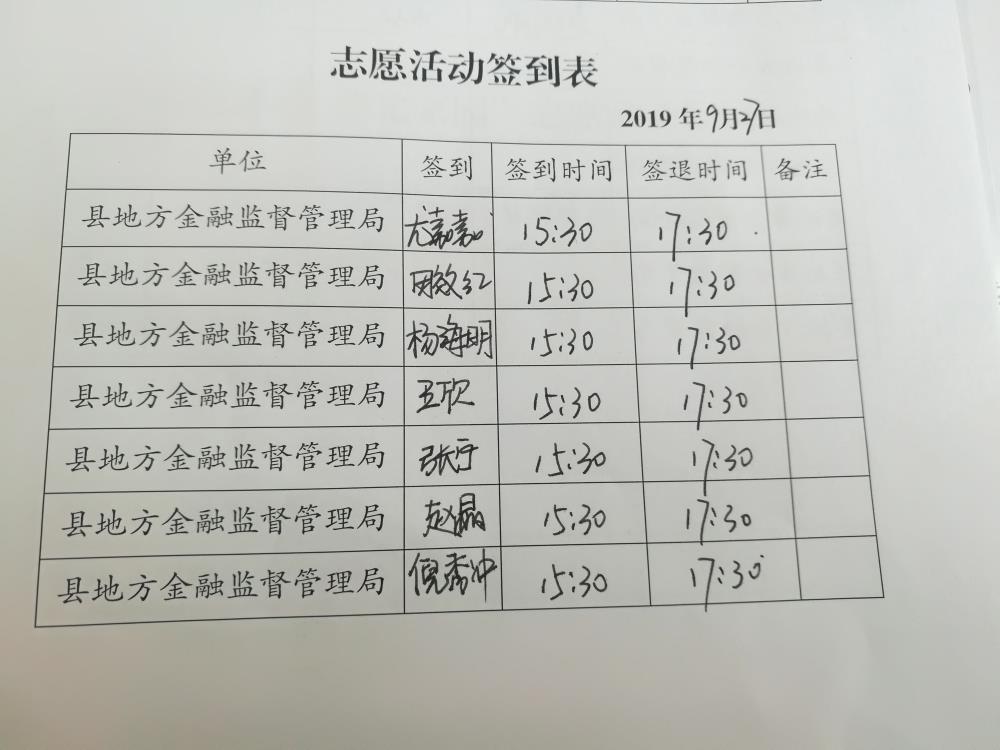 志愿活动签到表
2019年9月27日
单位 签到 签到时间 签退时间 备注
县地方金融监督管理局 尤嘉嘉 15:30 17:30
县地方金融监督管理局 15:30 17:30
县地方金融监督管理局 杨海明 15:30 17:30
县地方金融监督管理局 王欣 15:30 17:30
县地方金融监督管理局 张宁 15:30 17:30
县地方金融监督管理局 赵晶 15:30 17:30
县地方金融监督管理局 倪秀冲 15:30 17:30